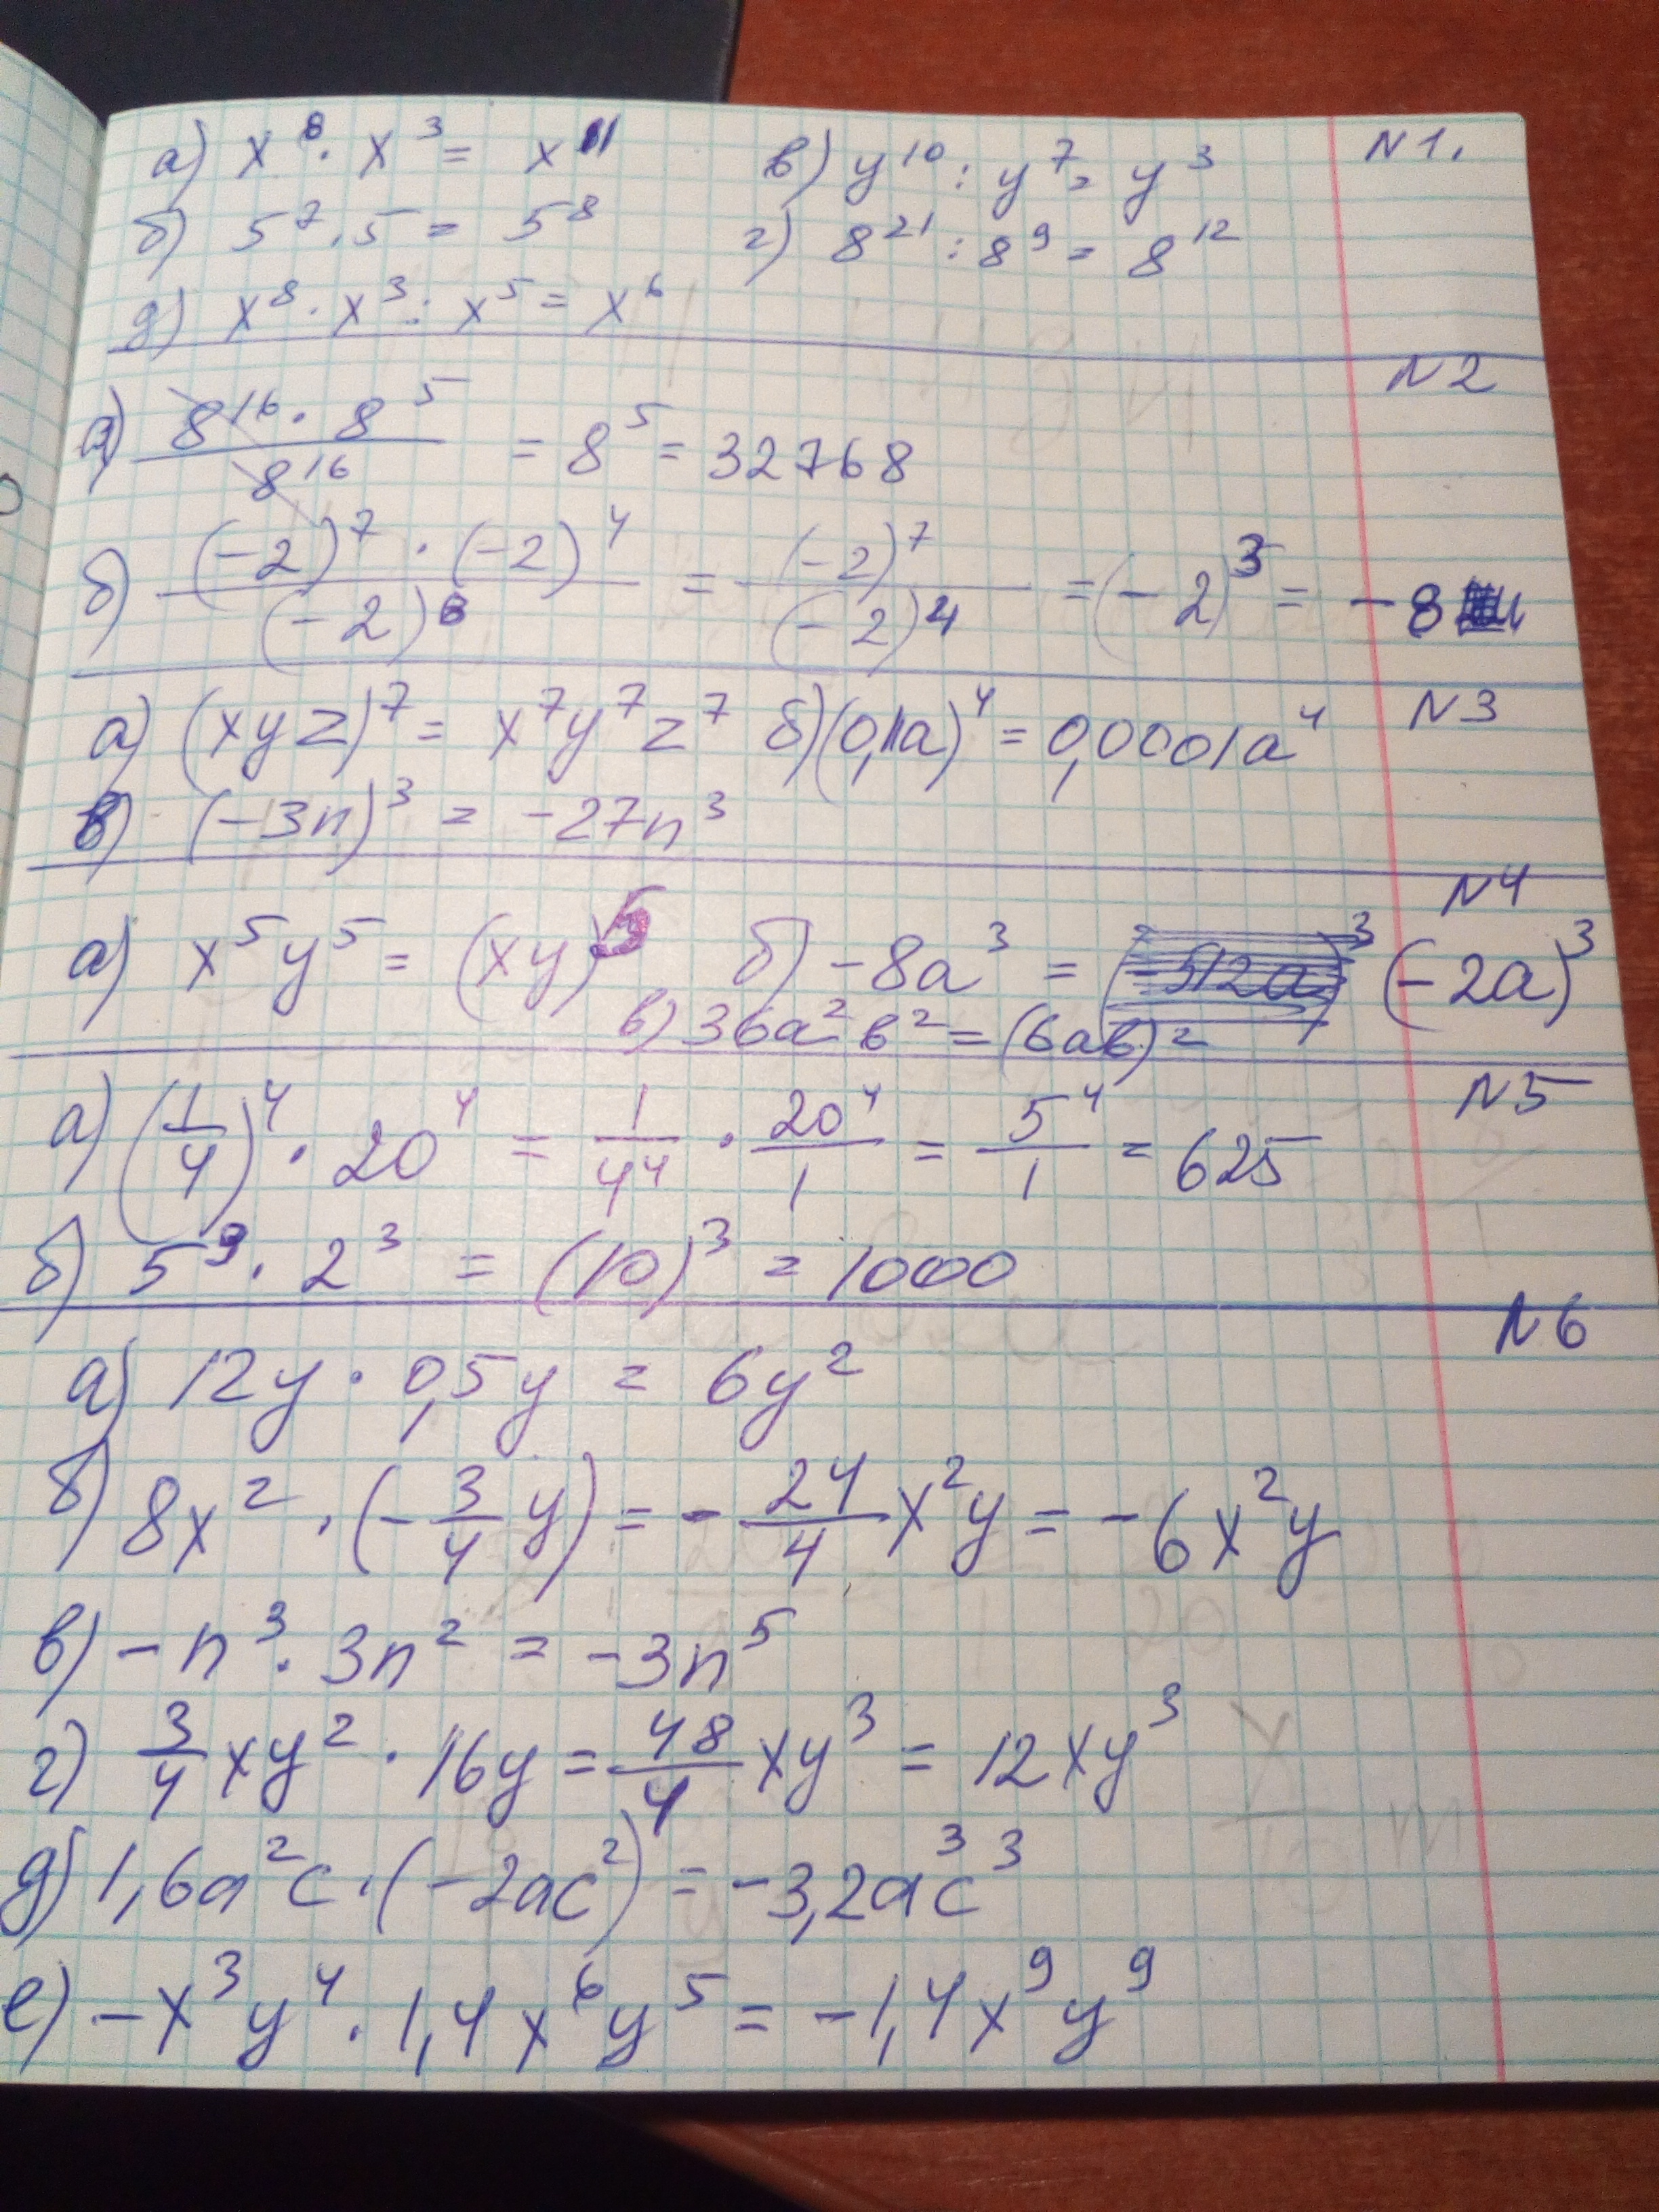 N1.
а) x⁸ · x³ = x¹¹ в) y¹⁰ : y⁷ = y³
б) 5⁷ · 5 = 5⁸ г) 8²¹ : 8⁹ = 8¹²
д) x⁸ · x³ : x⁵ = x⁶
N2
а) (8¹⁶ · 8⁵)/8¹⁶ = 8⁵ = 32768
б) ((-2)⁷ · (-2)⁴)/(-2)⁸ = (-2)⁷/(-2)⁴ = (-2)³ = -8
N3
а) (xyz)⁷ = x⁷y⁷z⁷ б) (0,1a)⁴ = 0,0001a⁴
в) (-3n)³ = -27n³
N4
а) x⁵y⁵ = (xy)⁵ б) -8a³ = (-2a)³
в) 36a²в² = (6aв)²
N5
а) (1/4)⁴ · 20⁴ = 1/4⁴ · 20⁴/1 = 5⁴/1 = 625
б) 5³ · 2³ = (10)³ = 1000
N6
а) 12y · 0,5y = 6y²
б) 8x² · (-3/4 y) = -24/4 x²y = -6x²y
в) -n³ · 3n² = -3n⁵
г) 3/4 xy² · 16y = 48/4 xy³ = 12xy³
д) 1,6a²c · (-2ac²) = -3,2a³c³
е) -x³y⁴ · 1,4x⁶y⁵ = -1,4x⁹y⁹